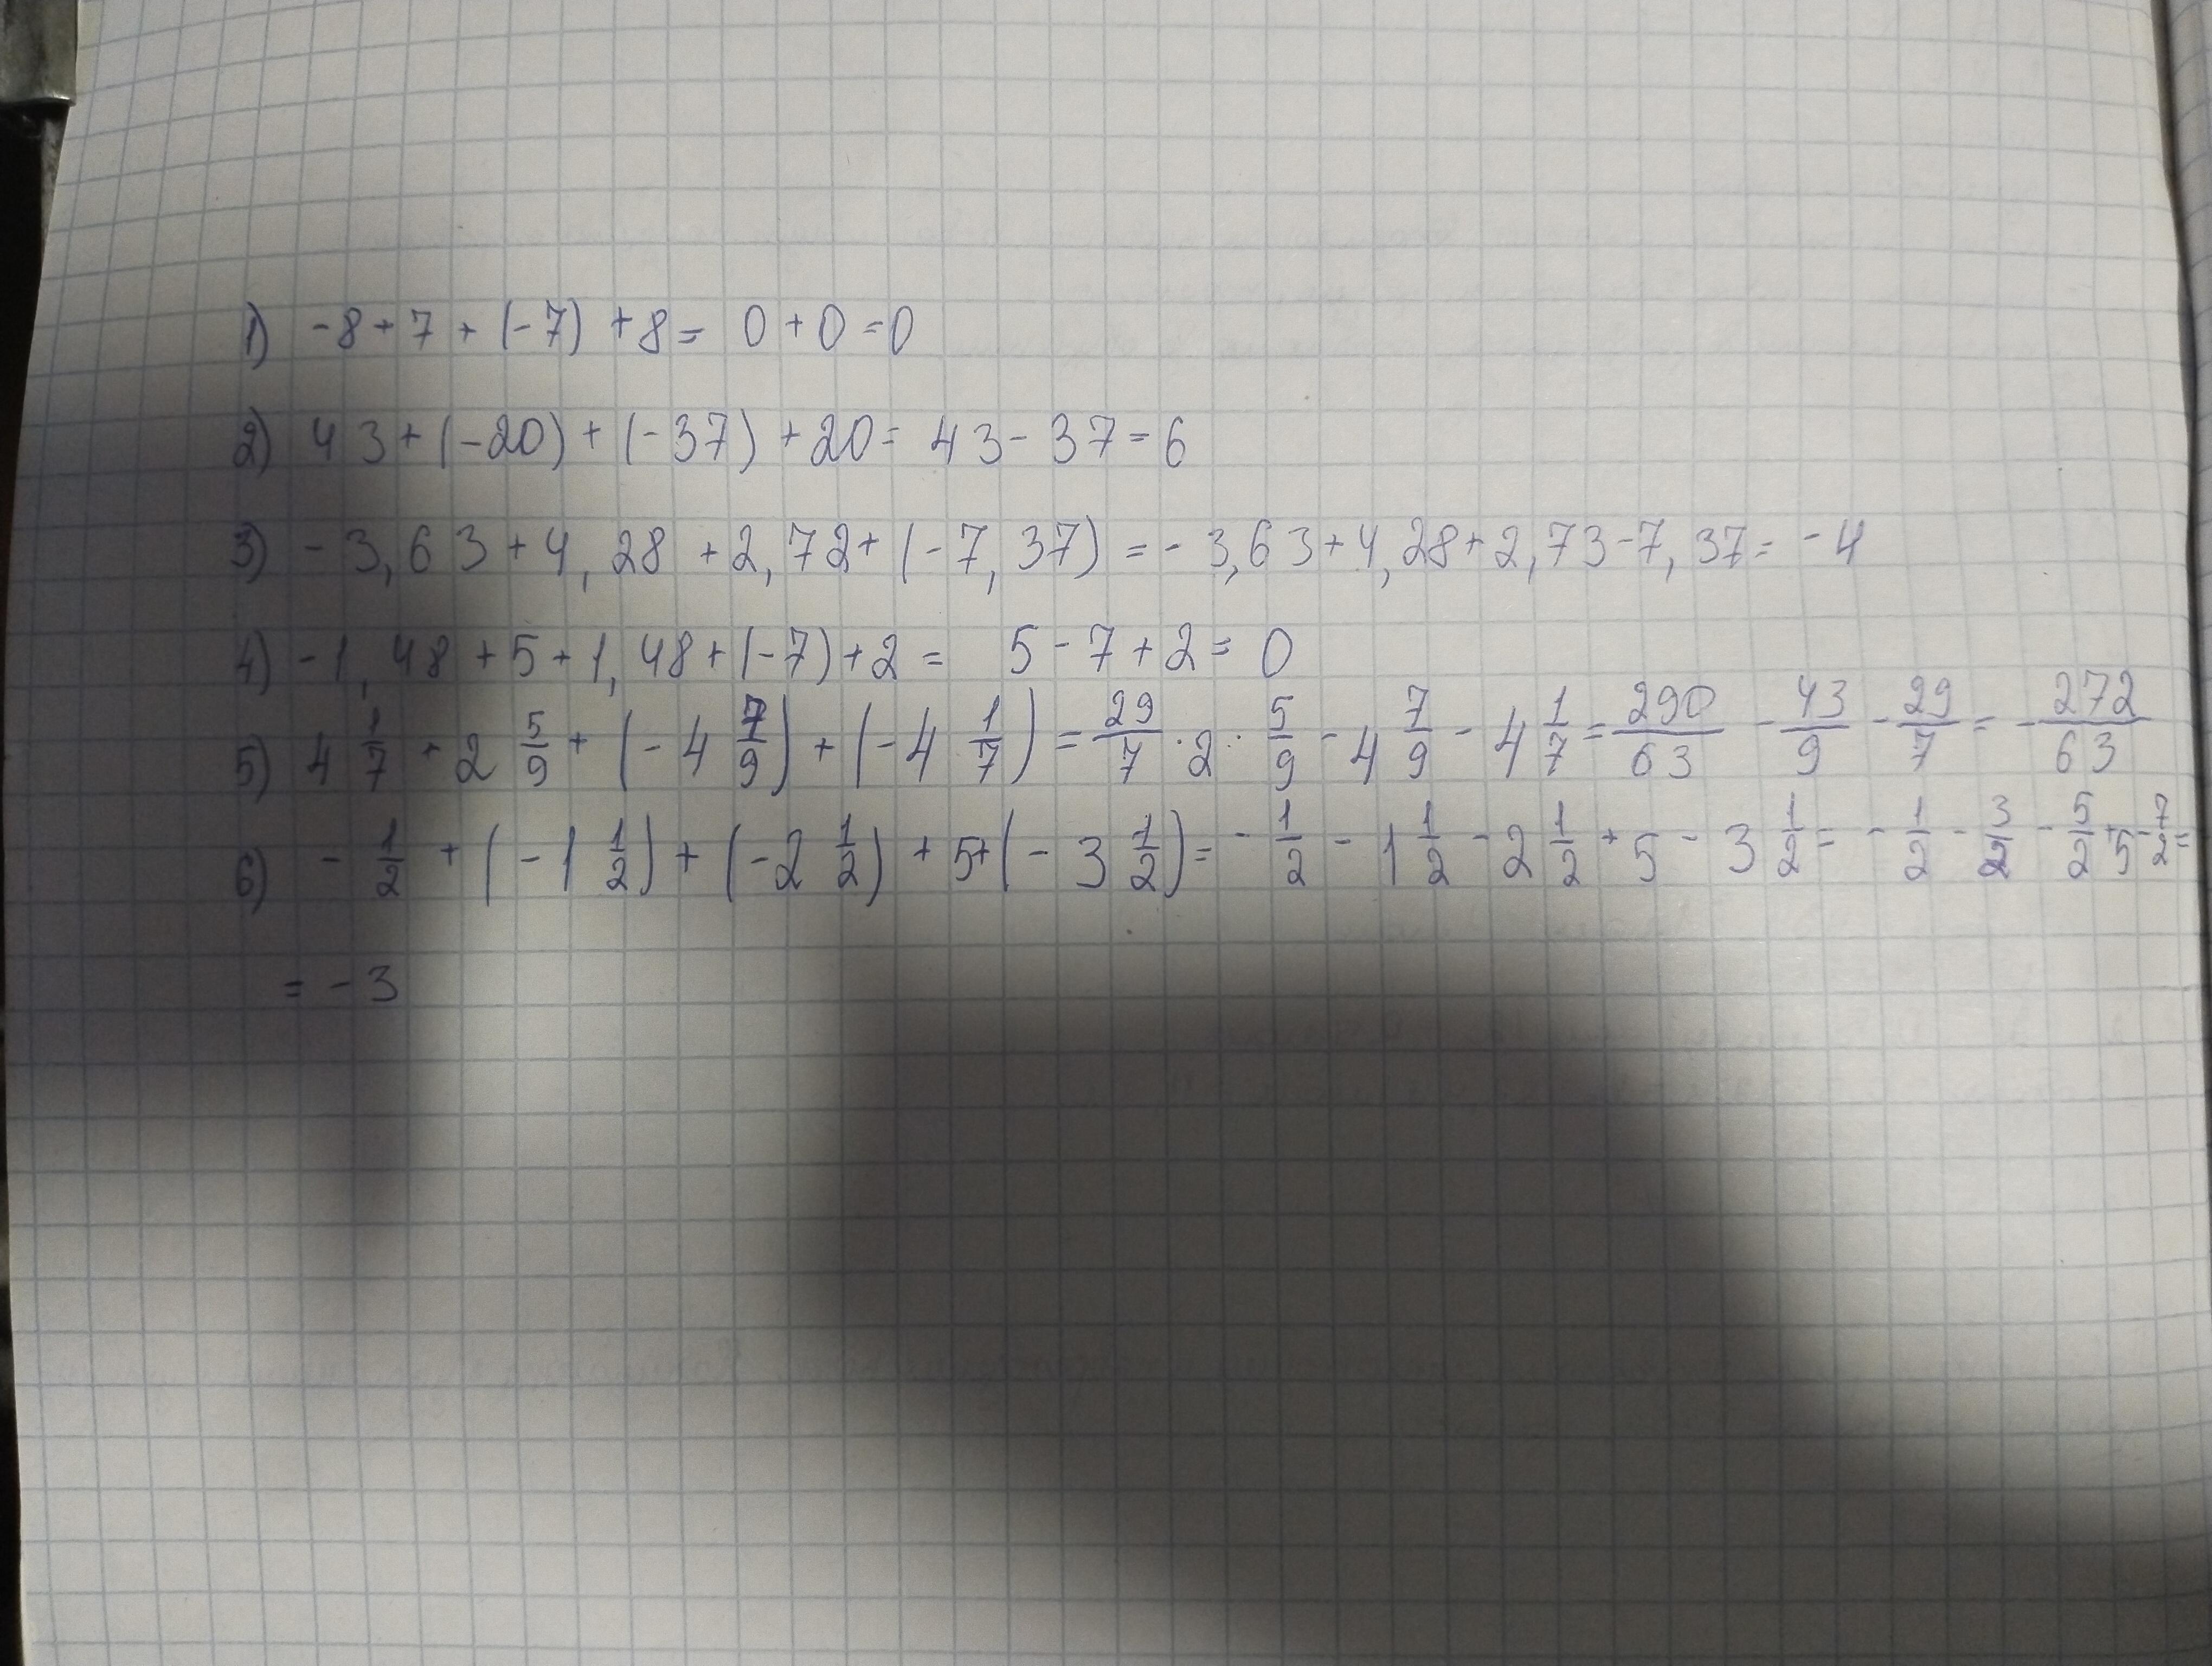 1) -8+7+(-7)+8= 0+0=0
2) 43+(-20)+(-37)+20= 43-37=6
3) -3,63+4,28+2,72+(-7,37)=-3,63+4,28+2,73-7,37=-4
4) -1,48+5+1,48+(-7)+2= 5-7+2=0
5) 4 1/7 + 2 5/9 + (-4 7/9) + (-4 1/7) = 29/7 · 2 · 5/9 - 4 7/9 - 4 1/7 = 290/63 - 43/9 - 29/7 = -272/63
6) - 1/2 + (-1 1/2) + (-2 1/2) + 5+(-3 1/2) = - 1/2 - 1 1/2 - 2 1/2 + 5 - 3 1/2 = - 1/2 - 3/2 - 5/2 + 5 - 7/2 =
= -3